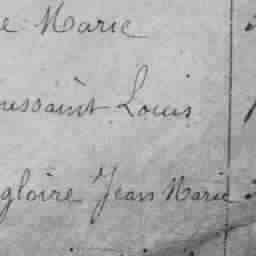 e Marie
oussaint Louis
gloire Jean Marie